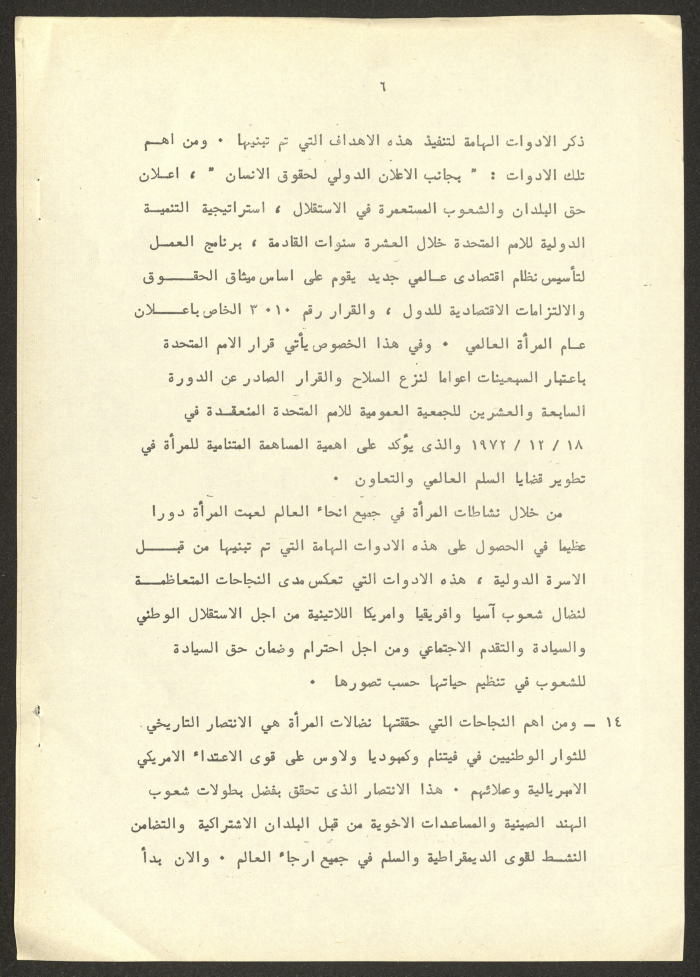 ٦
ذكر الادوات الهامة لتنفيذ هذه الاهداف التي تم تبنيها ٠ ومن اهم
تلك الادوات : " بجانب الاعلان الدولي لحقوق الانسان " ، اعلان
حق البلدان والشعوب المستعمرة في الاستقلال ، استراتيجية التنمية
الدولية للامم المتحدة خلال العشرة سنوات القادمة ، برنامج العمل
لتأسيس نظام اقتصادى عالمي جديد يقوم على اساس ميثاق الحقوق
والالتزامات الاقتصادية للدول ، والقرار رقم ٣٠١٠ الخاص باعلان
عام المرأة العالمي ٠ وفي هذا الخصوص يأتي قرار الامم المتحدة
باعتبار السبعينات اعواما لنزع السلاح والقرار الصادر عن الدورة
السابعة والعشرين للجمعية العمومية للامم المتحدة المنعقدة في
١٨ / ١٢ / ١٩٧٢ والذى يؤكد على اهمية المساهمة المتنامية للمرأة في
تطوير قضايا السلم العالمي والتعاون ٠
من خلال نشاطات المرأة في جميع انحاء العالم لعبت المرأة دورا
عظيما في الحصول على هذه الادوات الهامة التي تم تبنيها من قبل
الاسرة الدولية ، هذه الادوات التي تعكس مدى النجاحات المتعاظمة
لنضال شعوب آسيا وافريقيا وامريكا اللاتينية من اجل الاستقلال الوطني
والسيادة والتقدم الاجتماعي ومن اجل احترام وضمان حق السيادة
للشعوب في تنظيم حياتها حسب تصورها ٠
١٤ ــ ومن اهم النجاحات التي حققتها نضالات المرأة هي الانتصار التاريخي
للثوار الوطنيين في فيتنام وكمبوديا ولاوس على قوى الاعتداء الامريكي
الامبريالية وعملائهم ٠ هذا الانتصار الذى تحقق بفضل بطولات شعوب
الهند الصينية والمساعدات الاخوية من قبل البلدان الاشتراكية والتضامن
النشط لقوى الديمقراطية والسلم في جميع ارجاء العالم ٠ والان بدأ